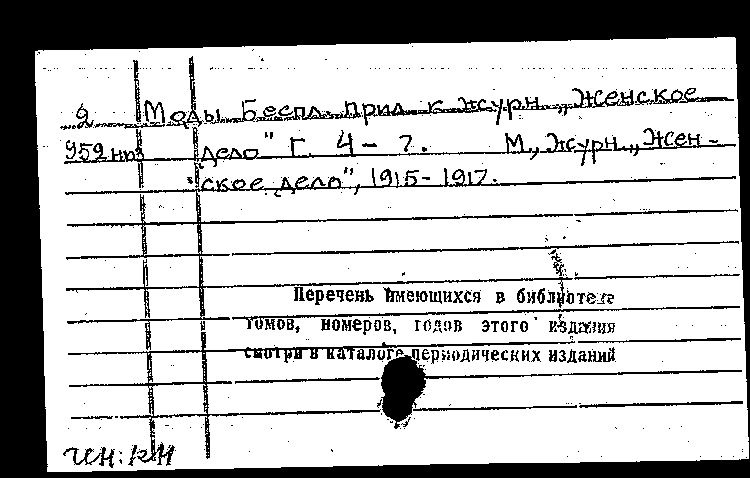 2 Моды Беспл. прил. к журн „Женское
952 нп дело" Г. 4 - ?. М., журн. „Жен-
ское дело", 1915-1917.
Перечень имеющихся в библиотеке
томов, номеров, годов этого издания
смотри в каталоге периодических изданий